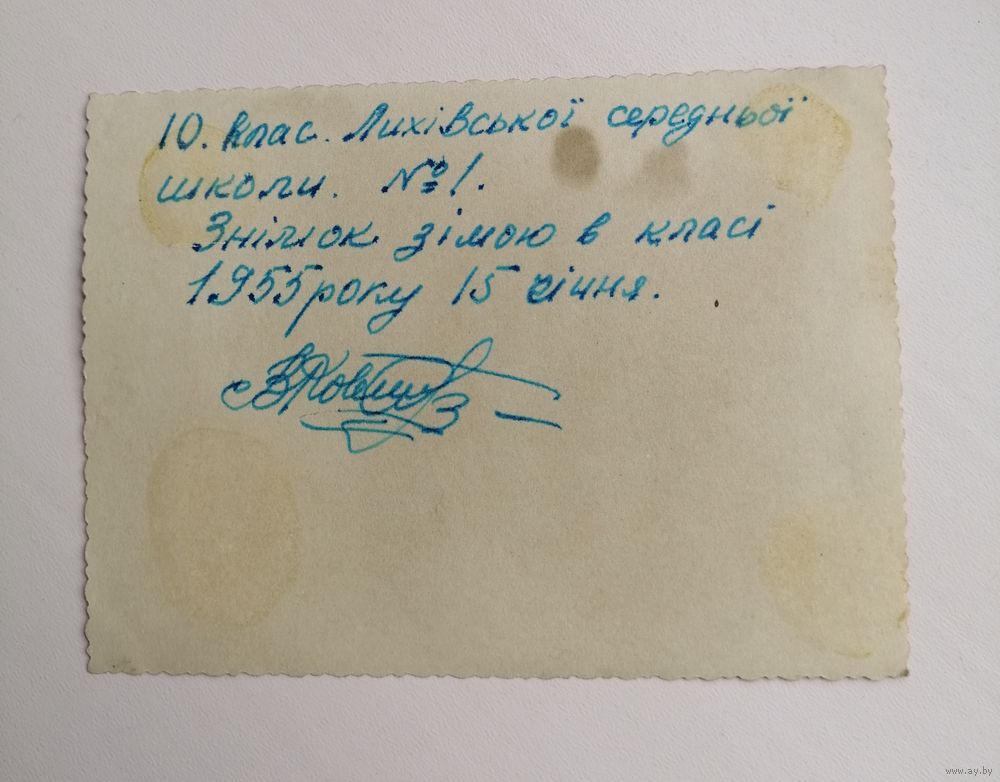 10. клас. Лихівської середньої
школи. №1.
Знімок зімою в класі
1955 року 15 січня.
www.ay.by